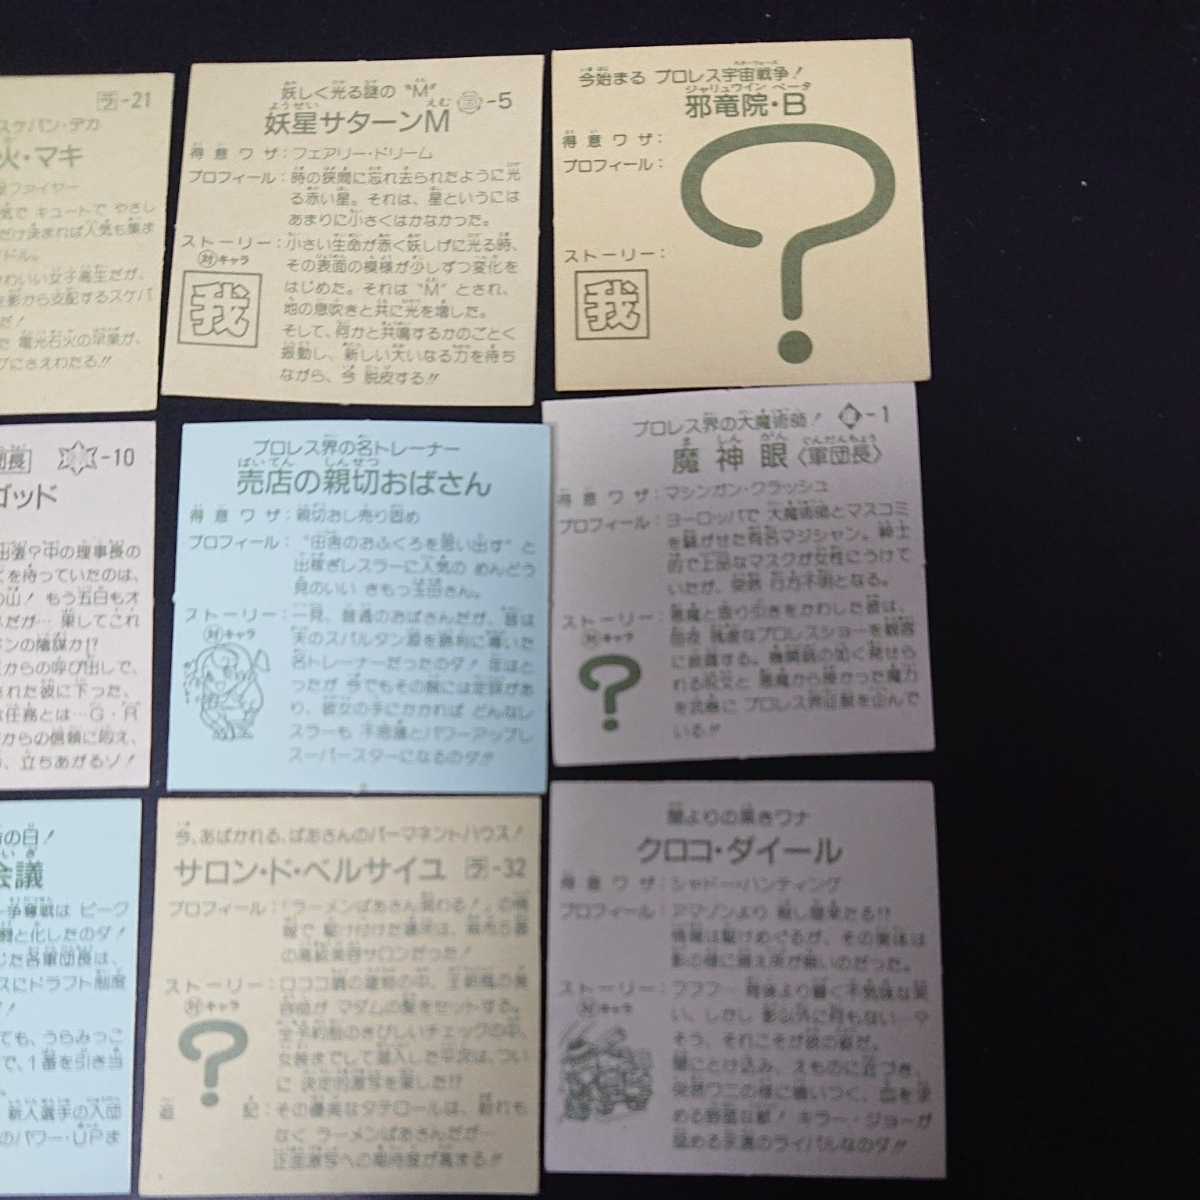 ラ-21
スケバン・デカ
火・マキ
ファイヤー
気で キュートで やさし
だけ決まれば人気も集ま
ドル。
かわいい女子高生だが、
影から支配するスケバ
だ!
た 電光石火の早業が、
げにさえわたる!!
妖しく光る謎の "M"
妖星サターンM
-5
得意ワザ:フェアリー・ドリーム
プロフィール:時の狭間に忘れ去られたように光
る赤い星。それは、星というには
あまりに小さくはかなかった。
ストーリー:小さい生命が赤く妖しげに光る時、
対キャラ
我
その表面の模様が少しずつ変化を
はじめた。それは "M" とされ、
地の息吹きと共に光を増した。
そして、何かと共鳴するかのごとく
振動し、新しい大いなる力を待ち
ながら、今 脱皮する!!
今始まる プロレス宇宙戦争!
邪竜院・B
得意ワザ:
プロフィール:
ストーリー:
我
?
団長
-10
ゴッド
出張?中の理事長の
を待っていたのは、
の山! もう五白もオ
だが… 果してこれ
ボンの陰謀か!?
からの呼び出しで、
された彼に下った、
任務とは…G・R
からの信頼に応え、
、立ちあがるゾ!
プロレス界の名トレーナー
売店の親切おばさん
得意ワザ:親切おし売り固め
プロフィール:"田舎のおふくろを思い出す" と
出稼ぎレスラーに人気の めんどう
見のいい きもっ玉母さん。
ストーリー:一見、普通のおばさんだが、昔は
対キャラ
天のスパルタン源を勝利に導いた
名トレーナーだったのダ! 年はと
ったが 今でもその腕には定評があ
り、彼女の手にかかれば どんなレ
スラーも 不思議とパワーアップし
スーパースターになるのダ!!
プロレス界の大魔術師!
-1
魔神眼〈軍団長〉
得意ワザ:マシンガン・クラッシュ
プロフィール:ヨーロッパで 大魔術師とマスコミ
を騒がせた有名マジシャン。紳士
的で上品なマスクが女性にうけて
いたが、突然 行方不明となる。
ストーリー:悪魔と取り引きをかわした彼は、
対キャラ
?
残虐なプロレスショーを観客
に披露する。機関銃の如く発せら
れる呪文と 悪魔から授かった魔力
を武器に プロレス界征服を企んで
いる!!
の日!
会議
争奪戦は ピーク
と化したのダ!
じた各軍団長は、
スにドラフト制度
!
ても、うらみっこ
で、1番を引き当
新人選手の入団
のパワー・UPま
今、あばかれる、ばあさんのパーマネントハウス!
サロン・ド・ベルサイユ ラ-32
プロフィール:「ラーメンばあさん現わる!」の情
報で 駆け付けた場所は、
の高級美容サロンだった!
ストーリー:ロココ調の建物の中、
対キャラ
?
マダムの髪をセットする。
のきびしいチェックの中、
女装までして潜入した平次は、つい
に 決定的激写を果した!?
追記:その優美なタテロールは、紛れも
なく ラーメンばあさんだが…
正面激写への期待度が高まる!!
闇よりの黒きワナ
クロコ・ダイール
得意ワザ:シャドー・ハンティング
プロフィール:アマゾンより 殺し屋来たる!!
情報は駆けめぐるが、その実体は
影の様に捕え所が無いのだった。
ストーリー:フフフ… 背後より響く不気味な笑
対キャラ
い、しかし 影以外に何もない…?
そう、それこそが彼の姿だ。
闇にとけ込み、えものに近づき、
突然ワニの様に喰いつく、血を求
める野蛮な獣! キラー・ジョーが
認める永遠のライバルなのダ!!